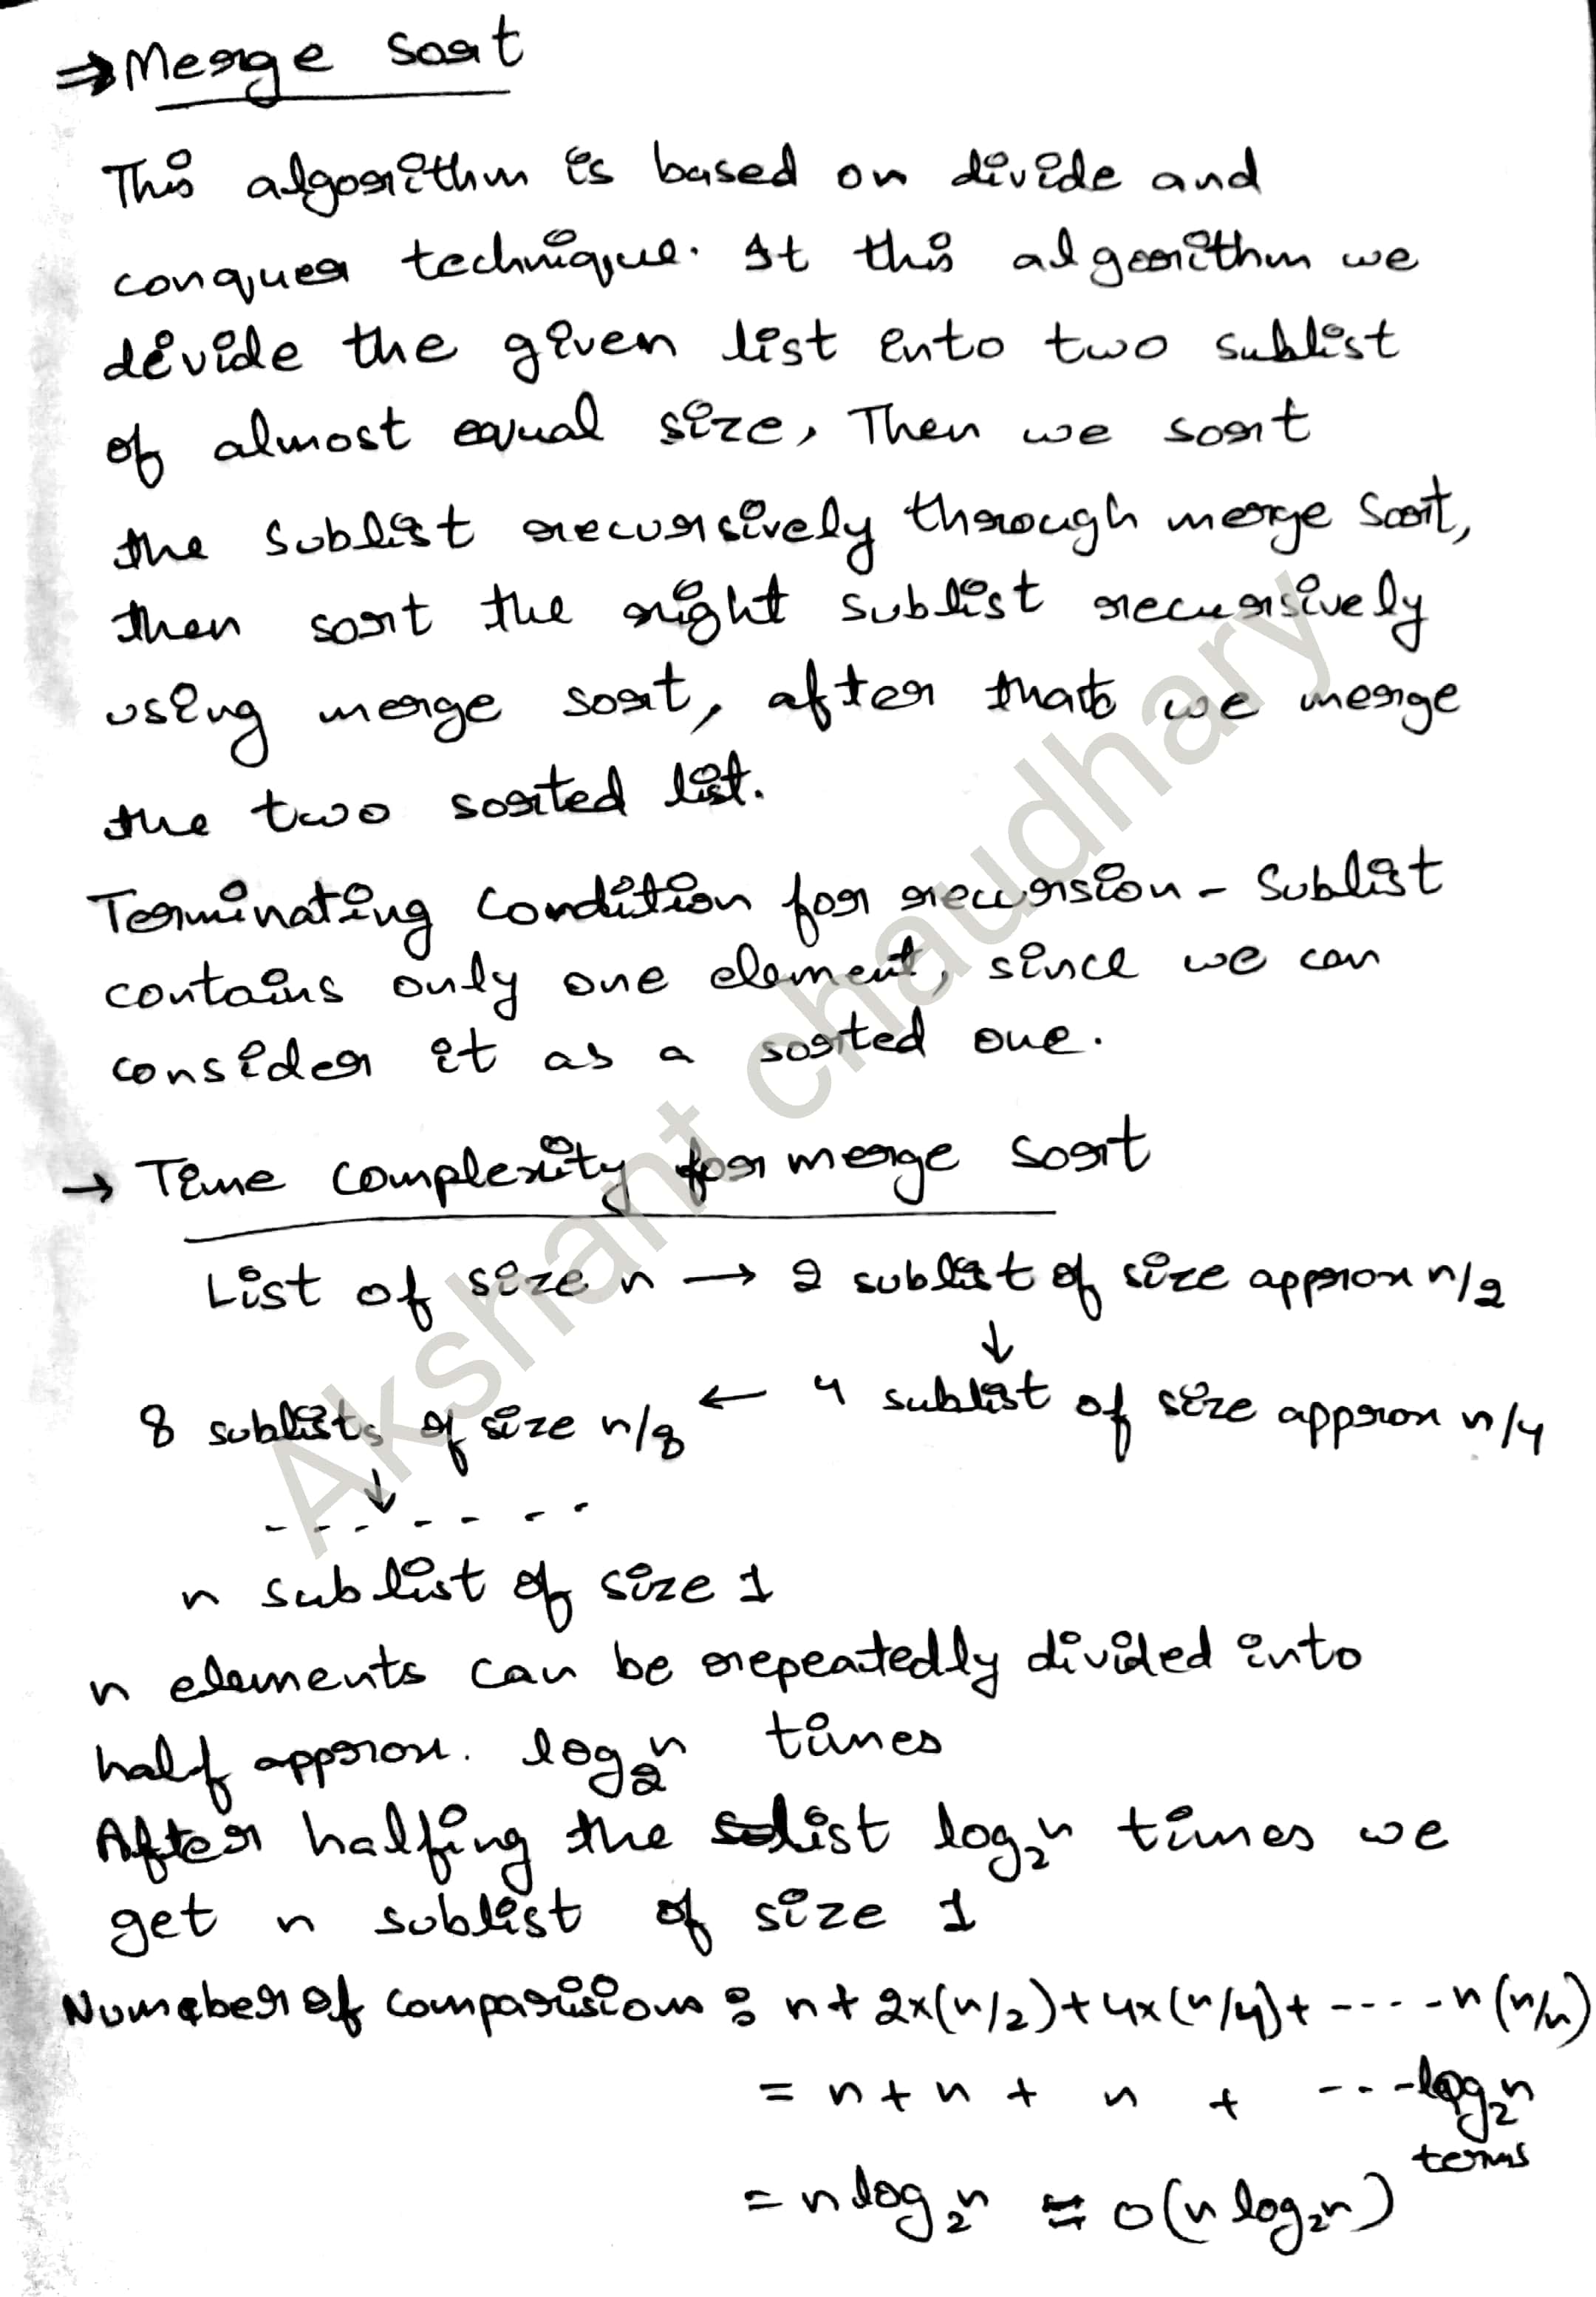 ⇒ Merge sort
This algorithm is based on divide and
conquer technique. It this algorithm we
divide the given list into two sublist
of almost equal size, Then we sort
the sublist recursively through merge sort,
then sort the right sublist recursively
using merge sort, after that we merge
the two sorted list.
Terminating condition for recursion - Sublist
contains only one element, since we can
consider it as a sorted one.
→ Time complexity for merge sort
List of size n → 2 sublist of size approx n/2
↓
8 sublists of size n/8 ← 4 sublist of size approx n/4
↓
- - - - - - -
n sublist of size 1
n elements can be repeatedly divided into
half approx. log₂n times
After halfing the list log₂n times we
get n sublist of size 1
Number of comparisions : n + 2x(n/2) + 4x(n/4) + ----- n(n/n)
= n + n + n + ---log₂n
terms
= n log₂n = O(n log₂n)
Akshant chaudhary